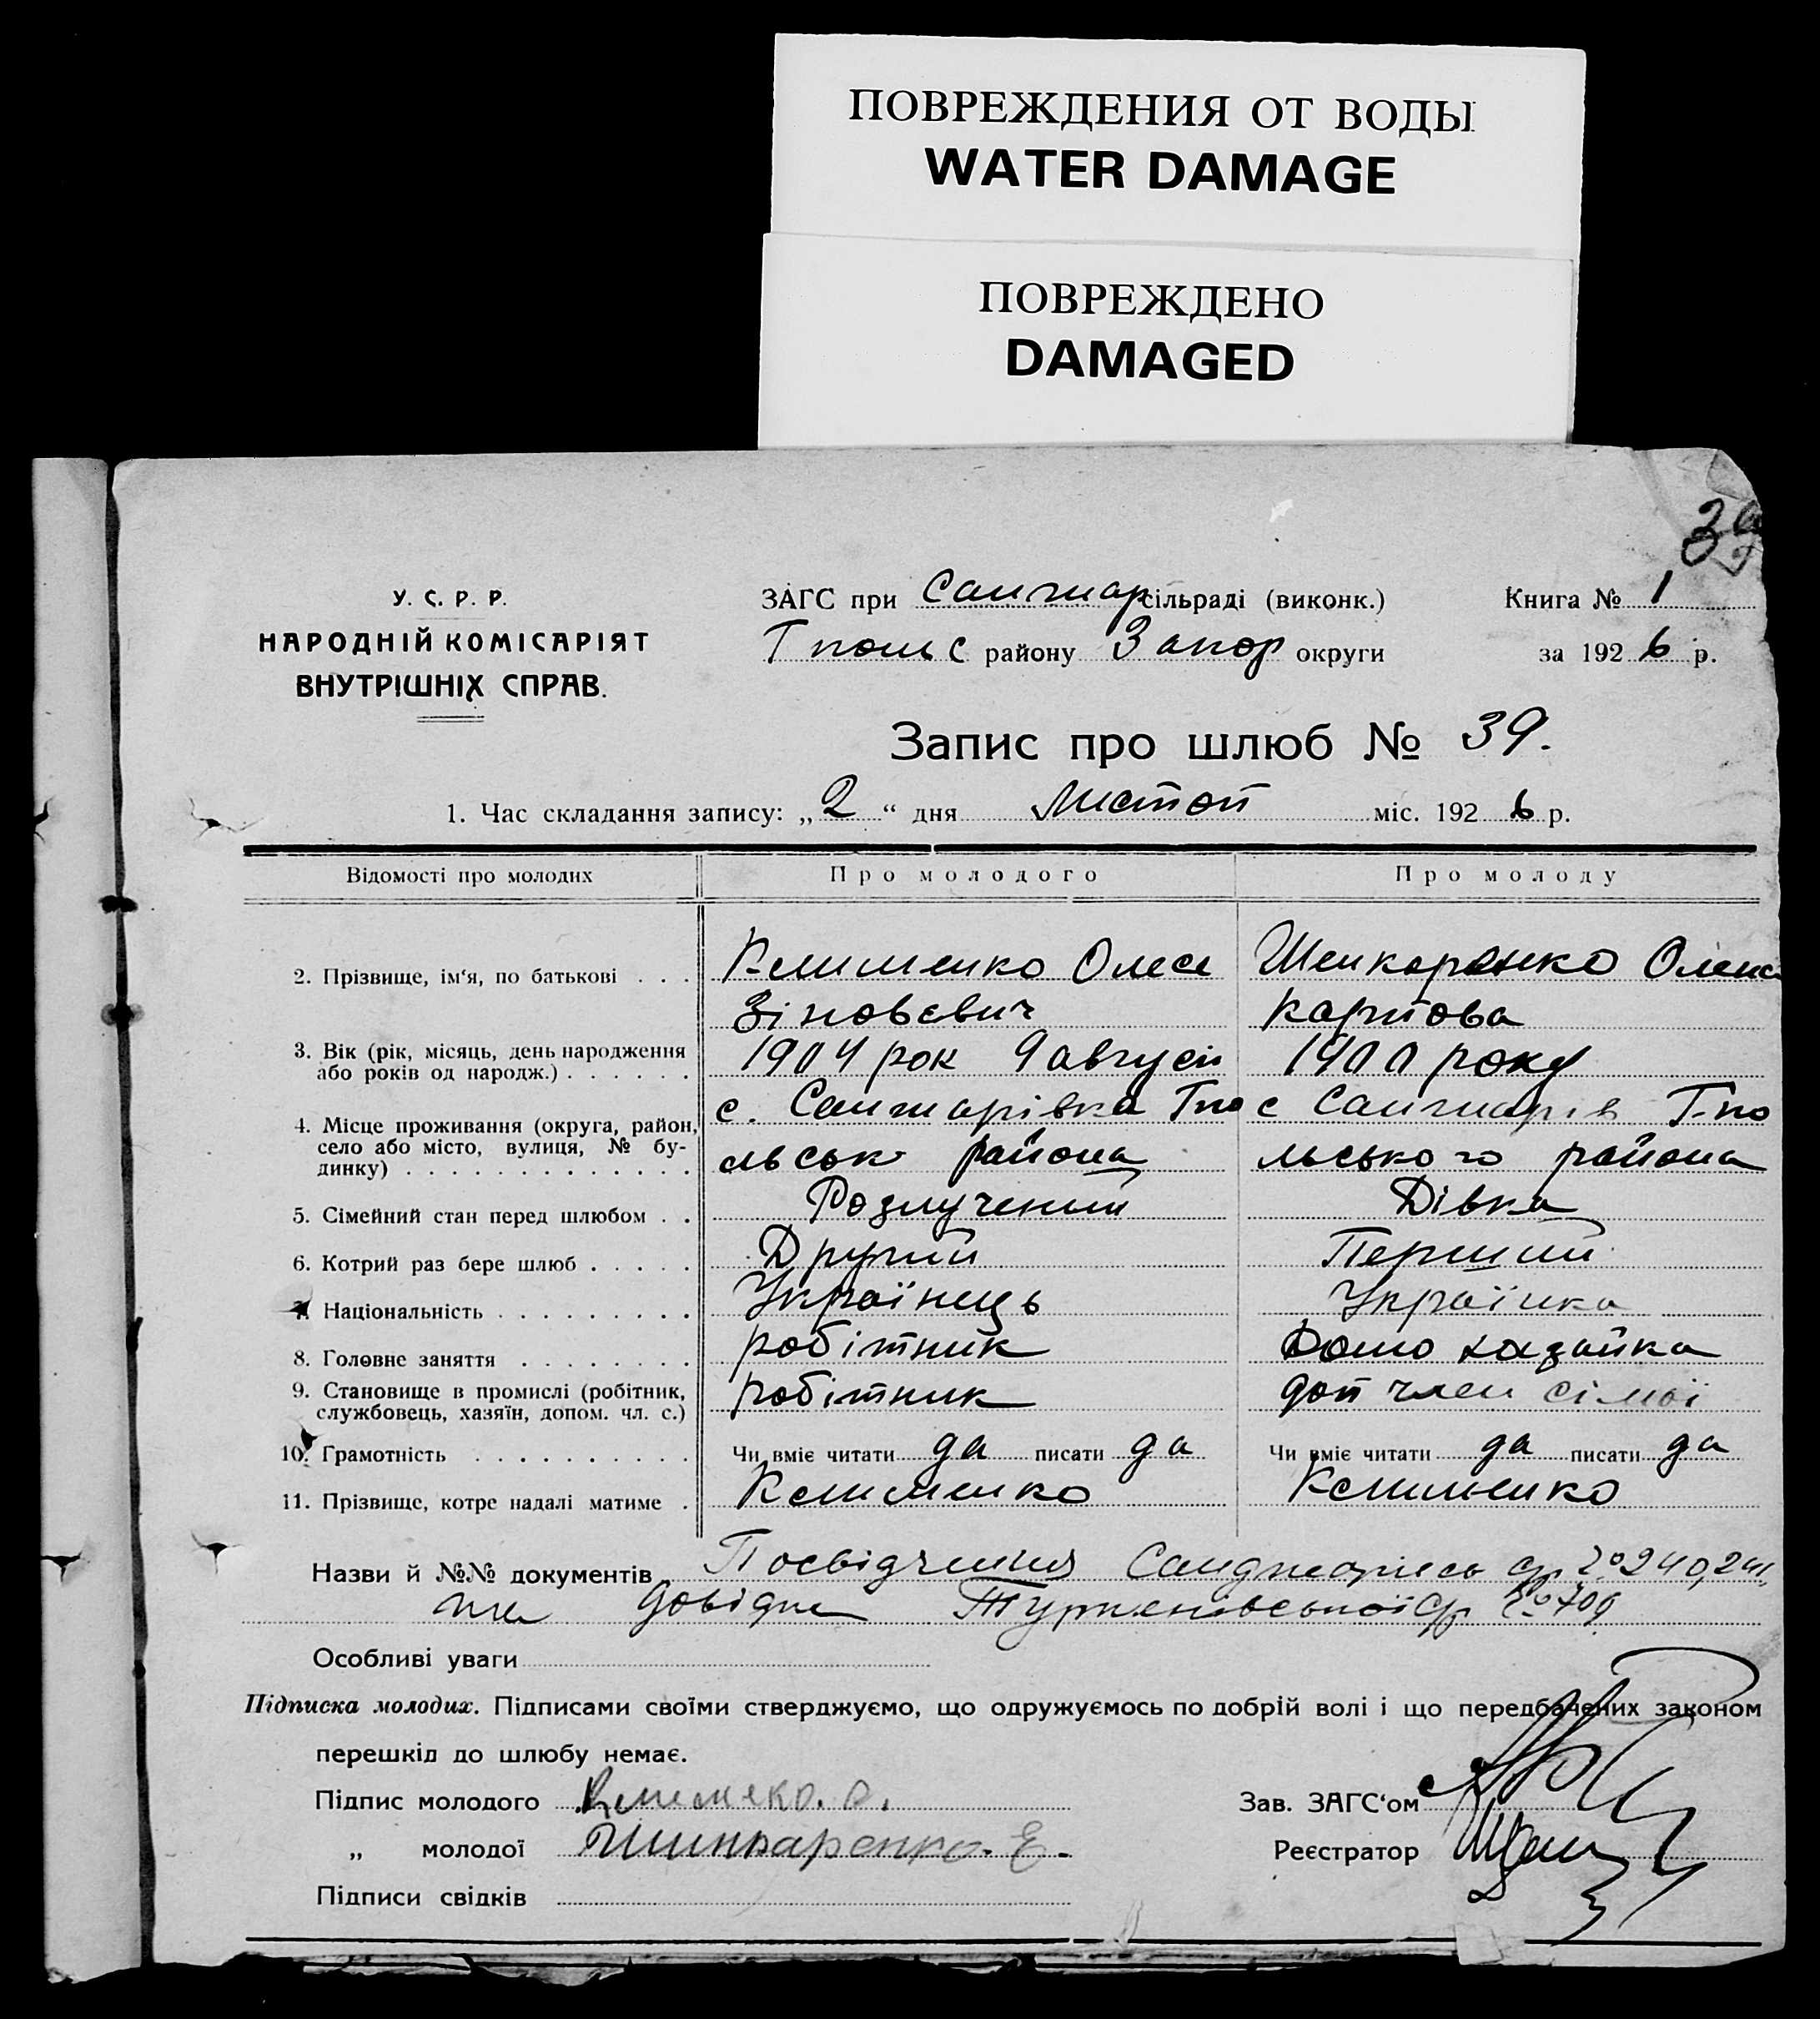 ПОВРЕЖДЕНИЯ ОТ ВОДЫ
WATER DAMAGE
ПОВРЕЖДЕНО
DAMAGED
39
У. С. Р. Р.
НАРОДНІЙ КОМІСАРІЯТ
ВНУТРІШНІХ СПРАВ.
ЗАГС при Санжар сільраді (виконк.)
Тпольс району Запор округи
Книга № 1
за 1926 р.
Запис про шлюб № 39.
1. Час складання запису: „2“ дня Листоп міс. 1926 р.
Відомості про молодих Про молодого Про молоду
2. Прізвище, ім'я, по батькові . . . Клименко Олесе Шенкаренко Олена
Зіновєвич Карпова
3. Вік (рік, місяць, день народження або років од народж.) . . . . . . 1904 рок 9 август 1900 року
4. Місце проживання (округа, район, село або місто, вулиця, № будинку) . . . . . . . . . . . . .
с. Санжарівка Тпо с Санжарів Т-по
льськ района льського района
5. Сімейний стан перед шлюбом . . Розлучений Дівка
6. Котрий раз бере шлюб . . . . . Другий Перший
7. Національність . . . . . . . . . Українець Українка
8. Головне заняття . . . . . . . . робітник Домо хазайка
9. Становище в промислі (робітник, службовець, хазяїн, допом. чл. с.) робітник доп член сімої
10. Грамотність . . . . . . . . . . Чи вміє читати да писати да Чи вміє читати да писати да
11. Прізвище, котре надалі матиме . Клименко Клименко
Назви й №№ документів Посвідчення Санджарись ср № 240, 241,
та довідка Туркенівської ср № 709
Особливі уваги
Підписка молодих. Підписами своїми стверджуємо, що одружуємось по добрій волі і що передбачених законом
перешкід до шлюбу немає.
Підпис молодого Клименко. О.
„ молодої Шинкаренко. Е.
Підписи свідків
Зав. ЗАГС'ом
Реєстратор